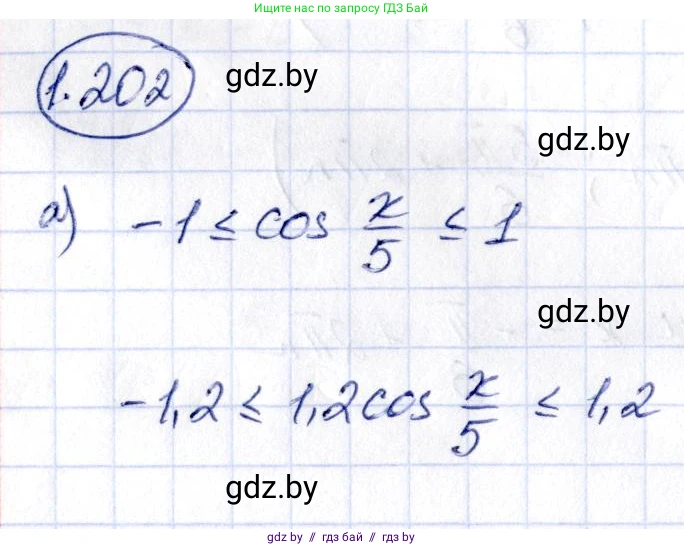 Ищите нас по запросу ГДЗ Бай
1.202
gdz.by
gdz.by
а) -1 ≤ cos x/5 ≤ 1
gdz.by
-1,2 ≤ 1,2cos x/5 ≤ 1,2
gdz.by
gdz by // гдз бай // гдз by